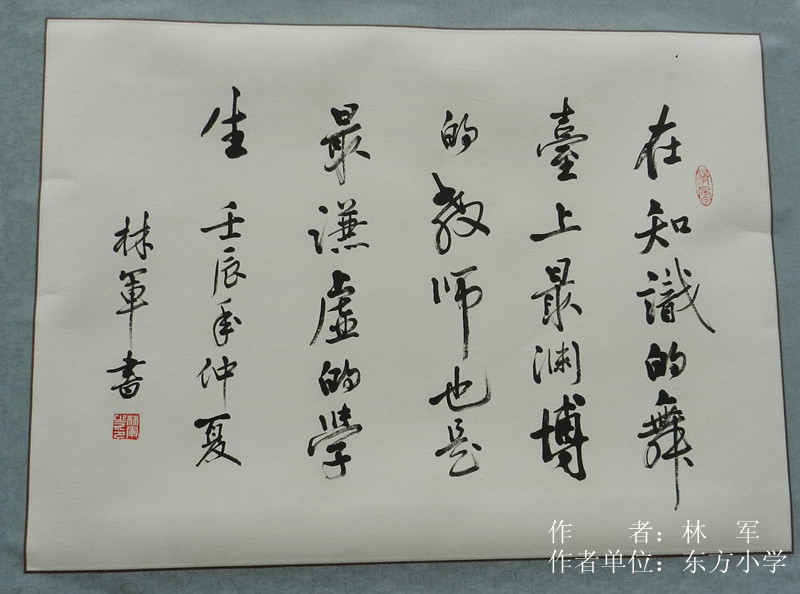 在知識的舞
臺上最渊博
的教师也是
最謙虛的學
生 壬辰年仲夏
林军書
作 者：林 军
作者单位：东方小学